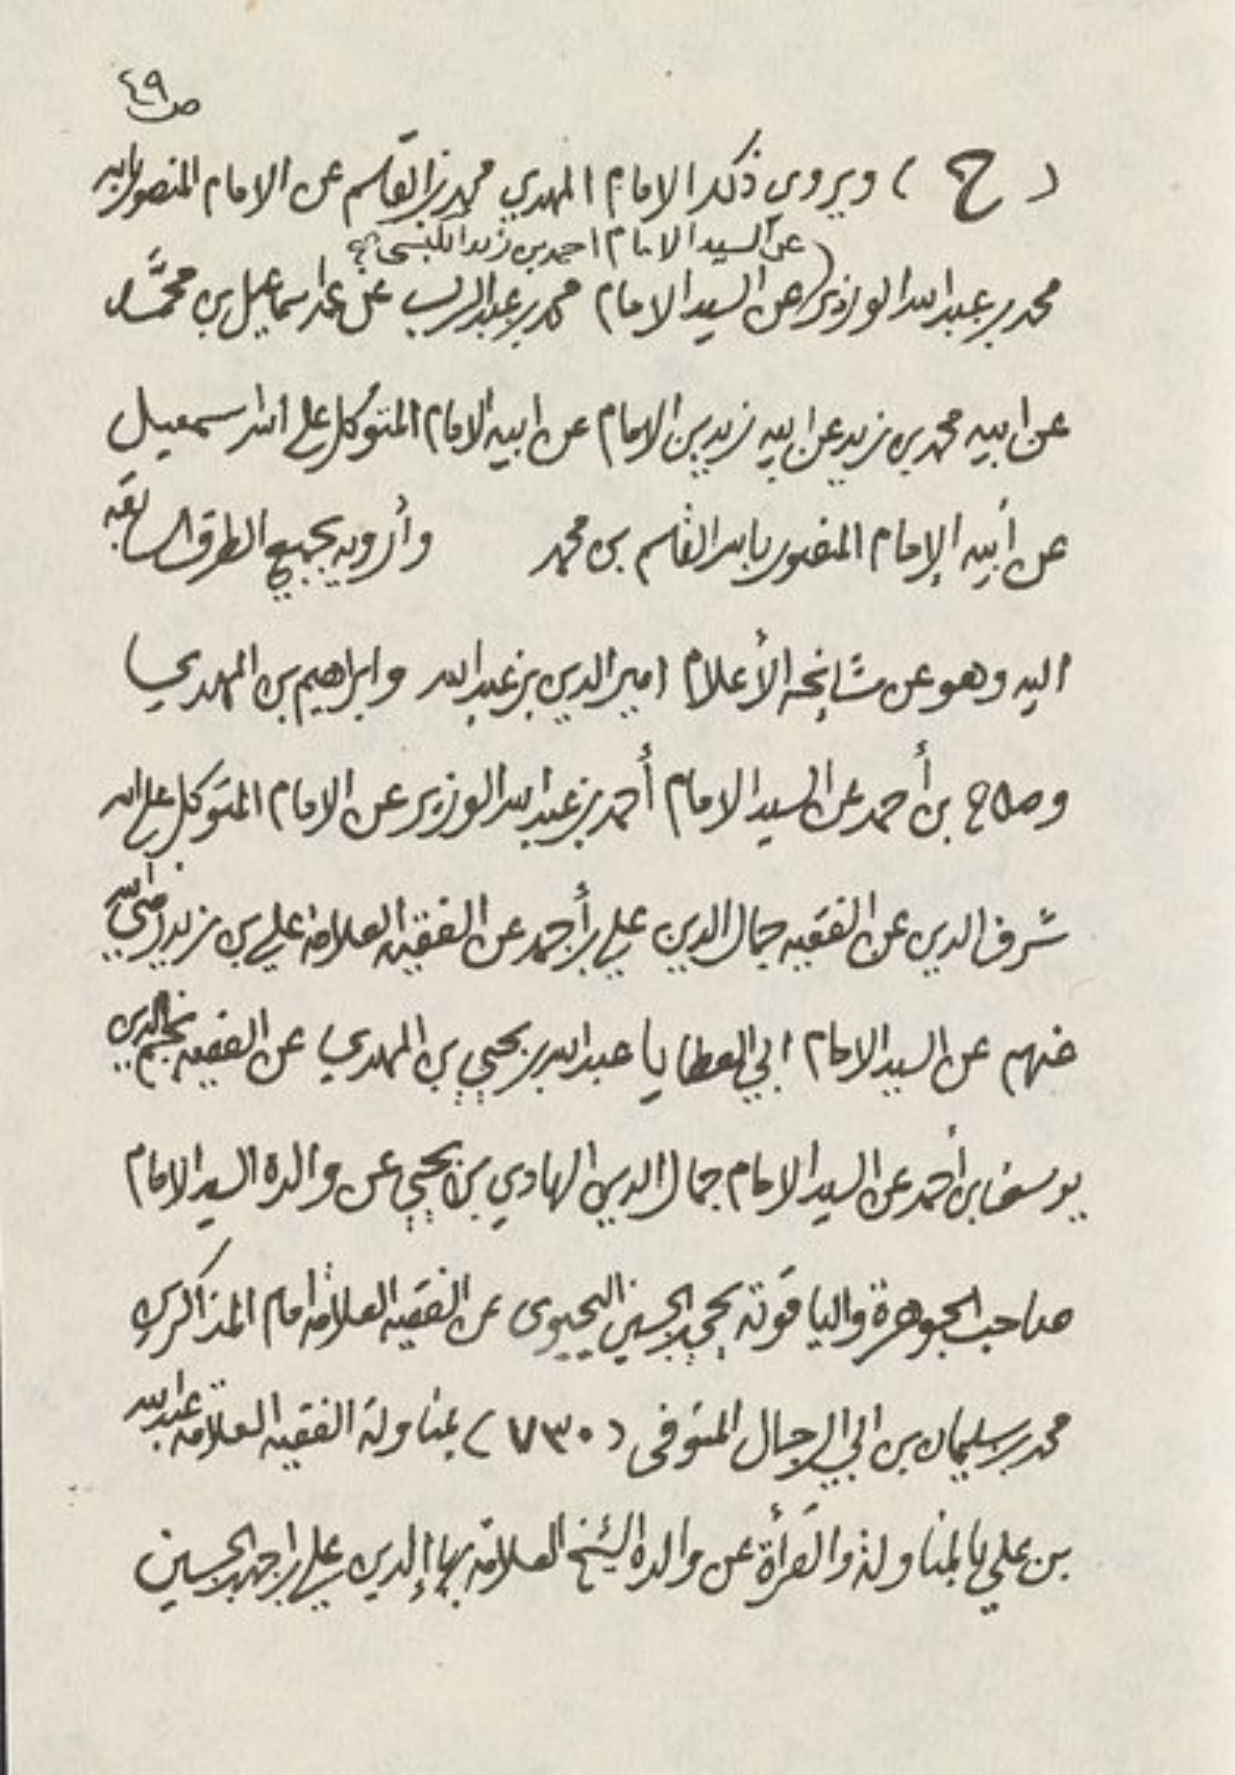 ص ٤٩
( ح ) ويروى ذكر الامام المهدي محمد بن القاسم عن الامام المنصور بالله
عن السيد الامام احمد بن زيد الكبسي
محمد بن عبد الله الوزير عن السيد الامام محمد بن عبد الرب عن عمه اسماعيل بن محمد
عن ابيه محمد بن زيد عن ابيه زيد بن الامام عن ابيه الامام المتوكل على الله اسمعيل
عن أبيه الإمام المنصور بالله القاسم بن محمد وأرويه بجميع الطرق السابقه
اليه وهو عن مشائخه الأعلام امير الدين بن عبد الله وابراهيم بن المهدي
وصلاح بن أحمد عن السيد الامام أحمد بن عبد الله الوزير عن الامام المتوكل على الله
شرف الدين عن الفقيه جمال الدين علي بن أحمد عن الفقيه العلامة علي بن زيد رضي الله
عنهم عن السيد الامام ابي العطايا عبد الله بن يحيي بن المهدي عن الفقيه نجم الدين
يوسف بن أحمد عن السيد الامام جمال الدين الهادي بن يحيي عن والده السيد الامام
صاحب الجوهرة والياقوتة يحيي بن الحسين اليحيوى عن الفقيه العلامة امام المذاكرين
محمد بن سليمان بن ابي الرجال المتوفى ( ٧٣٠ ) بمناولة الفقيه العلامة عبد الله
بن علي بالمناولة والقرأة عن والده الشيخ العلامة بهاء الدين علي بن احمد بن الحسين